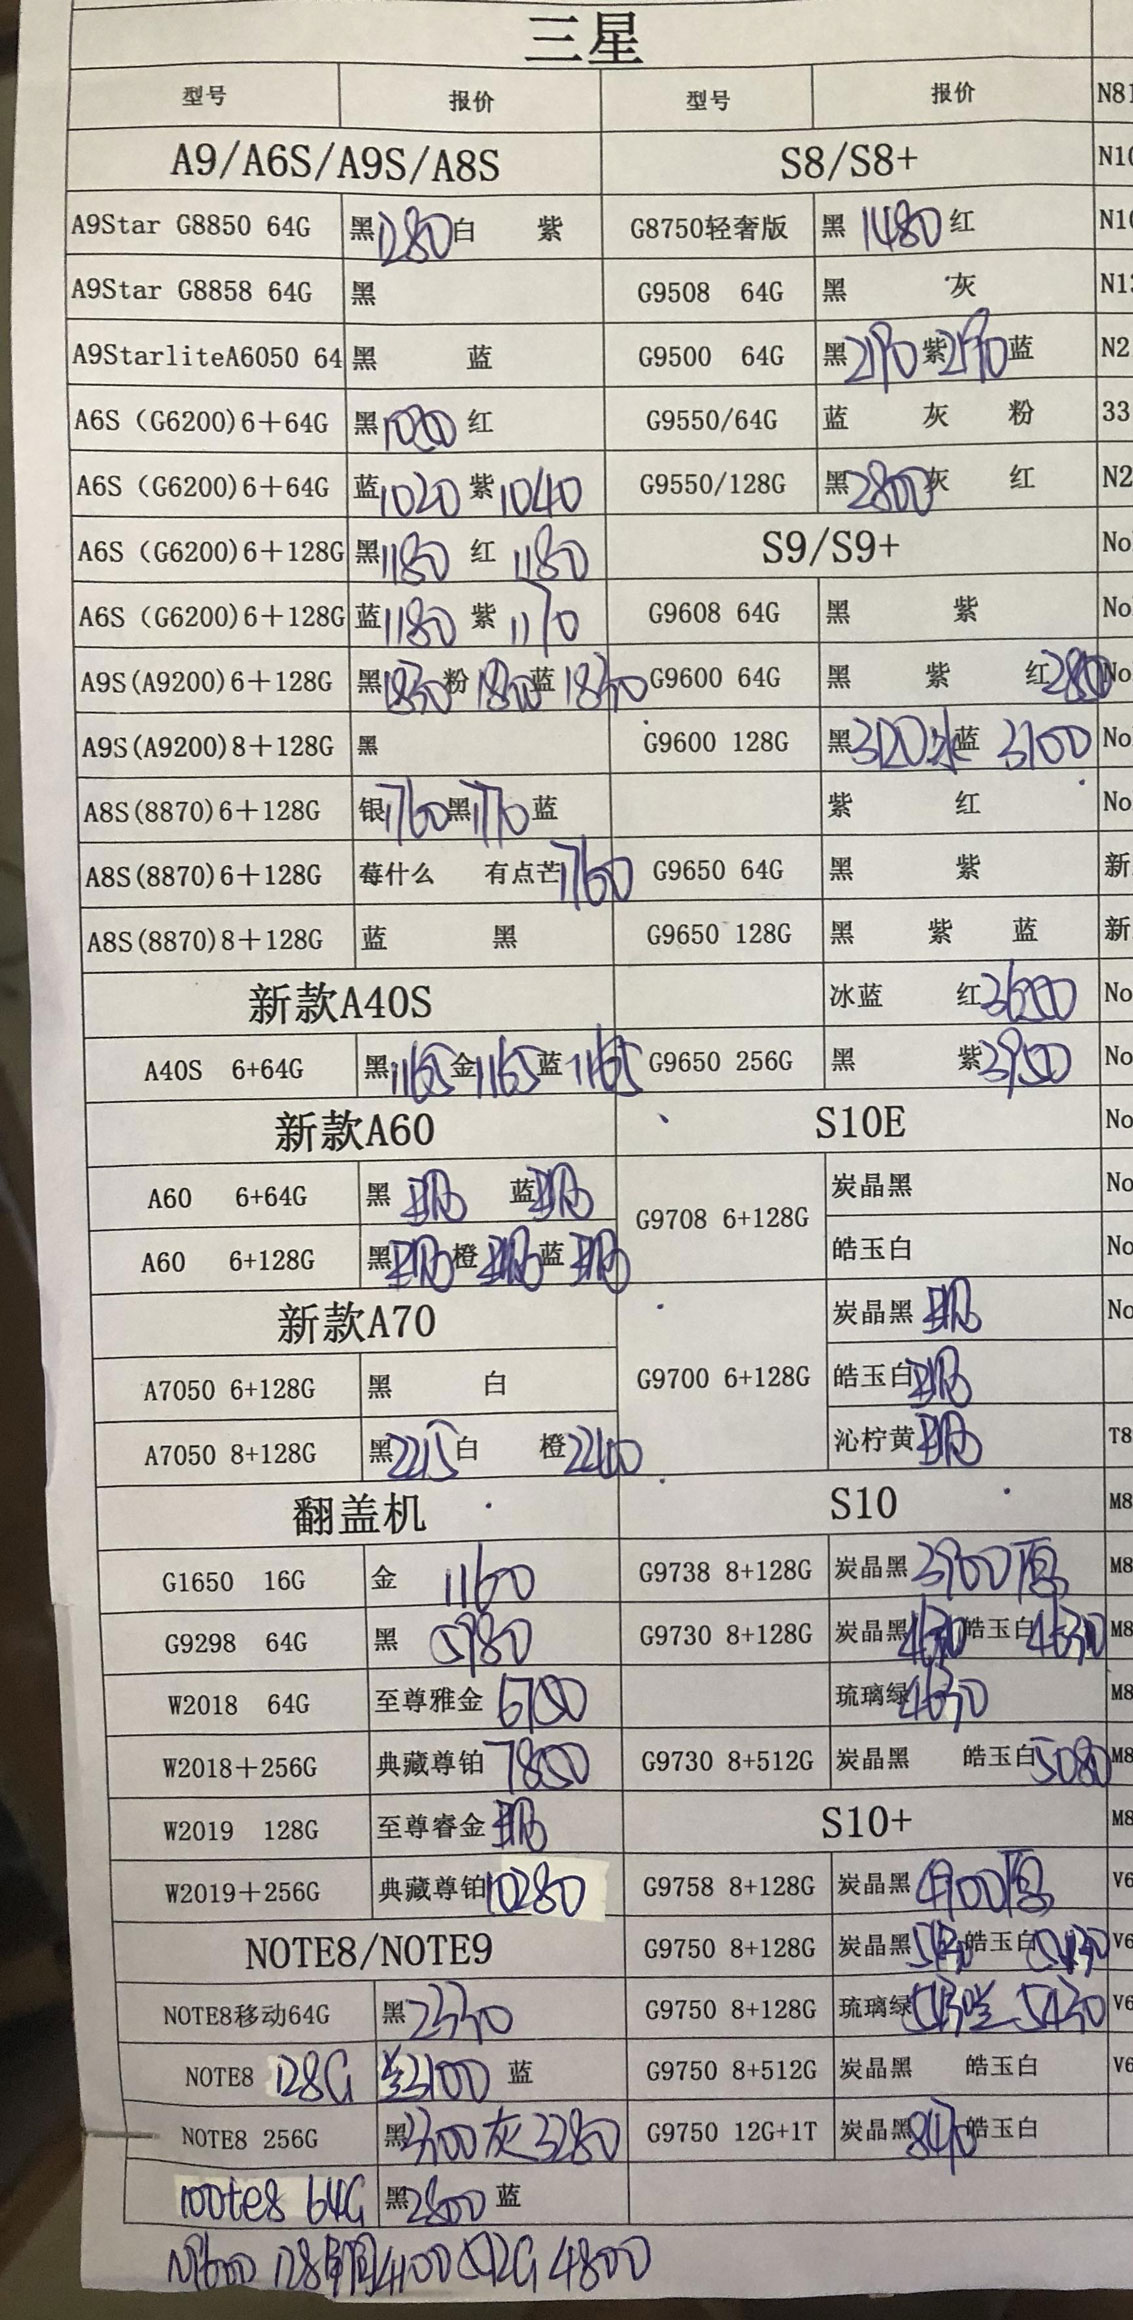 三星
型号 报价 型号 报价 N81
A9/A6S/A9S/A8S S8/S8+ N10
A9Star G8850 64G 黑1280白 紫 G8750轻奢版 黑 1480 红 N10
A9Star G8858 64G 黑 G9508 64G 黑 灰 N13
A9StarliteA6050 64 黑 蓝 G9500 64G 黑2190紫2190蓝 N2
A6S（G6200)6＋64G 黑1020 红 G9550/64G 蓝 灰 粉 33
A6S（G6200)6＋64G 蓝1020 紫1040 G9550/128G 黑2800灰 红 N2
A6S（G6200)6＋128G 黑1180 红 1180 S9/S9+ No
A6S（G6200)6＋128G 蓝1180 紫 1170 G9608 64G 黑 紫 No
A9S(A9200)6＋128G 黑1830粉1800蓝1840 G9600 64G 黑 紫 红280 No
A9S(A9200)8＋128G 黑 G9600 128G 黑3120冰蓝 3100 No
A8S(8870)6＋128G 银1760黑1770蓝 紫 红 No
A8S(8870)6＋128G 莓什么 有点芒1760 G9650 64G 黑 紫 新
A8S(8870)8＋128G 蓝 黑 G9650 128G 黑 紫 蓝 新
新款A40S 冰蓝 红3600 No
A40S 6+64G 黑1165金1165蓝1165 G9650 256G 黑 紫3950 No
新款A60 S10E No
A60 6+64G 黑 蓝 G9708 6+128G 炭晶黑 No
A60 6+128G 黑 橙 蓝 皓玉白 No
新款A70 炭晶黑 No
A7050 6+128G 黑 白 G9700 6+128G 皓玉白
A7050 8+128G 黑2215白 橙2240 沁柠黄 T8
翻盖机 S10 M8
G1650 16G 金 1160 G9738 8+128G 炭晶黑3900 M8
G9298 64G 黑 5980 G9730 8+128G 炭晶黑4630皓玉白4630 M8
W2018 64G 至尊雅金 6700 琉璃绿4630 M8
W2018＋256G 典藏尊铂 7800 G9730 8+512G 炭晶黑 皓玉白5080 M8
W2019 128G 至尊睿金 S10+ M8
W2019＋256G 典藏尊铂10280 G9758 8+128G 炭晶黑4900 V6
NOTE8/NOTE9 G9750 8+128G 炭晶黑5430皓玉白5430 V6
NOTE8移动64G 黑2330 G9750 8+128G 琉璃绿5430兰5430 V6
NOTE8 128G 兰3100 蓝 G9750 8+512G 炭晶黑 皓玉白 V6
NOTE8 256G 黑3300灰3280 G9750 12G+1T 炭晶黑8470皓玉白
note8 64G 黑2800 蓝
N9600 128 4100 512G 4800